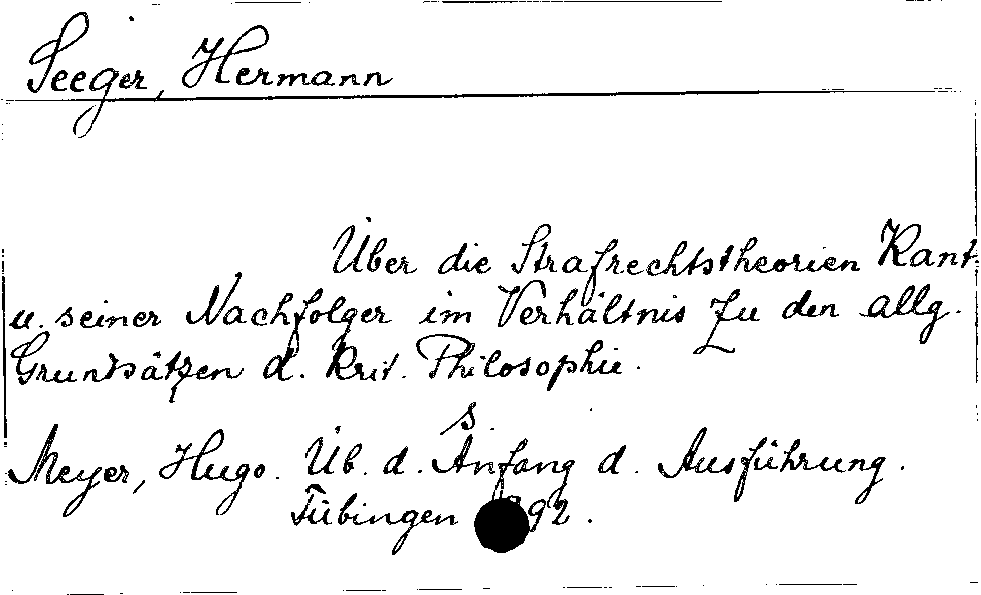 Seeger, Hermann
Über die Strafrechtstheorien Kant
u. seiner Nachfolger im Verhältnis zu den allg.
Grundsätzen d. krit. Philosophie.
s.
Meyer, Hugo. Üb. d. Anfang d. Ausführung.
Tübingen 92.